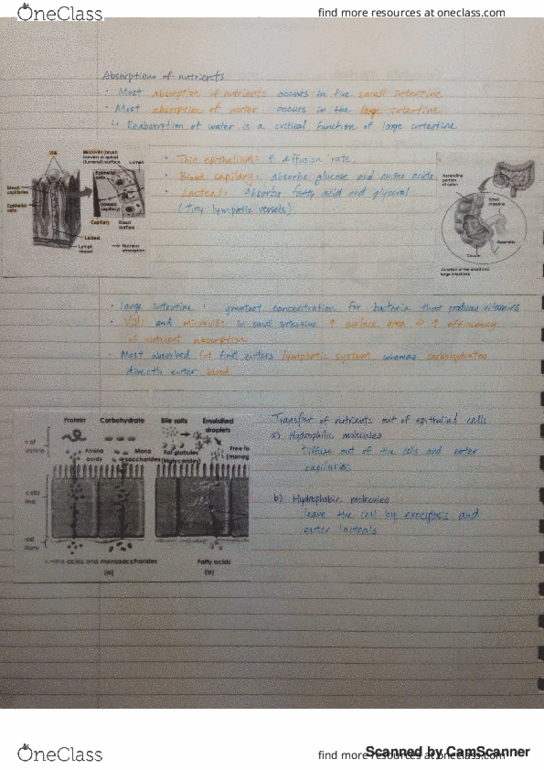 OneClass
find more resources at oneclass.com
Absorptions of nutrients
• Most absorption of nutrients occurs in the small intestine
• Most absorption of water occurs in the large intestine
↳ Reabsorption of water is a critical function of large intestine
• Thin epithelium: ↑ diffusion rate.
• Blood capillary: absorbs glucose and amino acids
• Lacteal: absorbs fatty acid and glycerol
(tiny lympatic vessels)
Villi
Microvilli (brush
Lumen
Epithelial
Blood
capillaries
Epithelial
cells
Capillary
Basal
surface
Lacteal
Lymph
vessel
Nutrient
absorption
Ascending
portion
of colon
Small
intestine
Appendix
Cecum
Junction of the small and
large intestines
• Large intestine : greatest concentration for bacteria that produces vitamins
• Villi and microvilli in small intestine ↑ surface area → ↑ efficiency
of nutrient absorption
• Most absorbed fat first enters lympatic system whereas carbohydrates
directly enter blood.
Protein Carbohydrate Bile salts Emulsified
droplets
Amino
acids
Mono
saccharides
Fat globules
(triglycerides)
amino acids and monosaccharides
Fatty acids
(a)
(b)
Transfer of nutrients out of epithelial cells
a) Hydrophilic molecules
diffuse out of the cells and enter
capillaries
b) Hydrophobic molecules
leave the cell by exocytosis and
enter lacteals
OneClass
find more resources at oneclass.com
Scanned by CamScanner